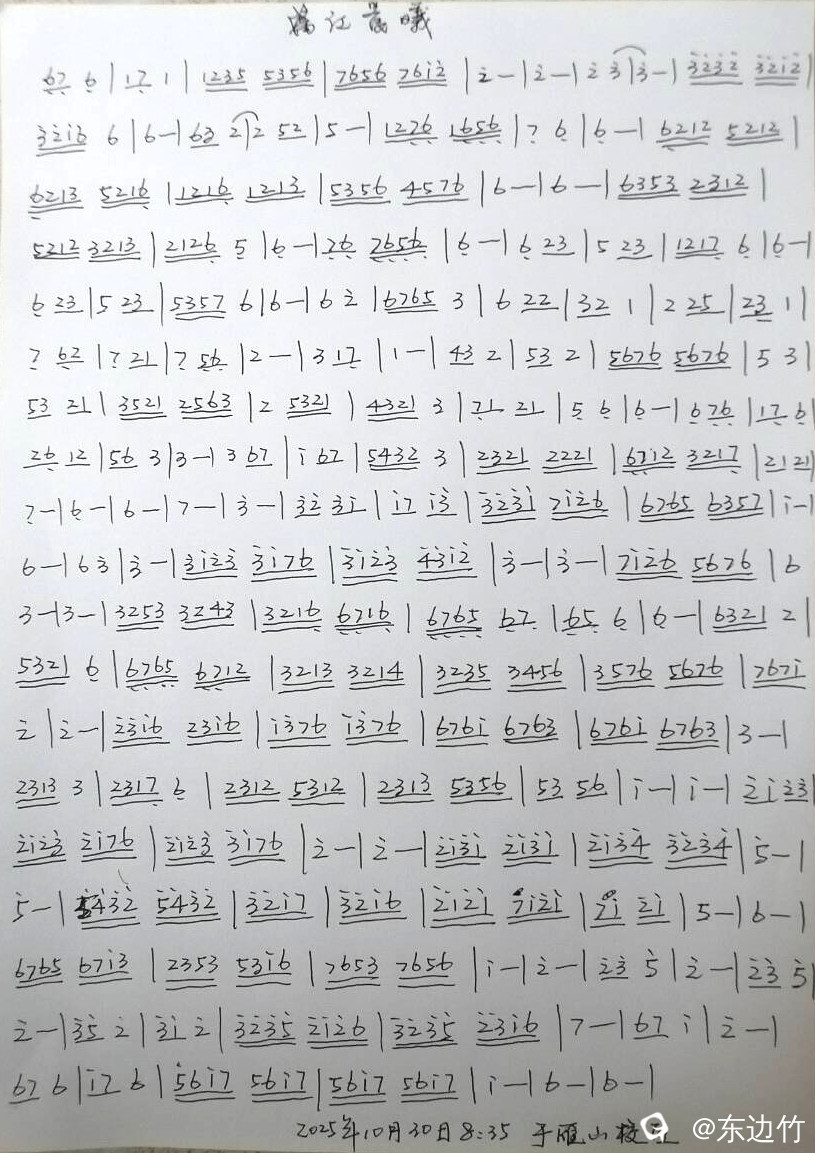 江晨曦
67 6 | 17 1 | 1235 5356 | 7656 7612 | 2 — | 2 — | 2 3 | 3 — | 3232 3212 |
3216 6 | 6 — | 63 2 | 2 52 | 5 — | 1276 1656 | 7 6 | 6 — | 6212 5212 |
6213 5216 | 1216 1213 | 5356 4576 | 6 — | 6 — | 6353 2312 |
5212 3213 | 2126 5 | 6 — | 76 7656 | 6 — | 6 23 | 5 23 | 1217 6 | 6 — |
6 23 | 5 23 | 5357 6 | 6 — | 6 2 | 6765 3 | 6 22 | 32 1 | 2 25 | 23 1 |
7 62 | 7 21 | 7 56 | 2 — | 3 17 | 1 — | 43 2 | 53 2 | 5676 5676 | 5 3 |
53 21 | 3521 2563 | 2 5321 | 4321 3 | 71 21 | 5 6 | 6 — | 676 | 17 6 |
26 12 | 56 3 | 3 — | 3 67 | i 67 | 5432 3 | 2321 2221 | 6712 3217 | 2121
7 — | 6 — | 6 — | 7 — | 3 — | 32 3i | i7 i3 | 323i 7i26 | 6765 6357 | i — |
6 — | 6 3 | 3 — | 3i23 3i76 | 3i23 43i2 | 3 — | 3 — | 7i26 5676 | 6
3 — | 3 — | 3253 3243 | 3216 6716 | 6765 67 | 65 6 | 6 — | 6321 2 |
5321 6 | 6765 6712 | 3213 3214 | 3235 3456 | 3576 5676 | 767i
2 | 2 — | 23i6 23i6 | i376 i376 | 676i 6763 | 676i 6763 | 3 — |
2313 3 | 2317 6 | 2312 5312 | 2313 5356 | 53 56 | i — | i — | 2i 23 |
2i23 2i76 | 2i23 3i76 | 2 — | 2 — | 2i3i 2i3i | 2i34 3234 | 5 — |
5 — | 5432 5432 | 32i7 | 32i6 | 2i2i 7i2i | 2i 2i | 5 — | 6 — |
6765 67i3 | 2353 53i6 | 7653 7656 | i — | 2 — | 23 5 | 2 — | 23 5 |
2 — | 35 2 | 3i 2 | 3235 2i26 | 3235 23i6 | 7 — | 67 i | 2 — |
67 6 | i7 6 | 56i7 56i7 | 56i7 56i7 | i — | 6 — | 6 — |
2025年10月30日8:35 于雁山校
@东边竹